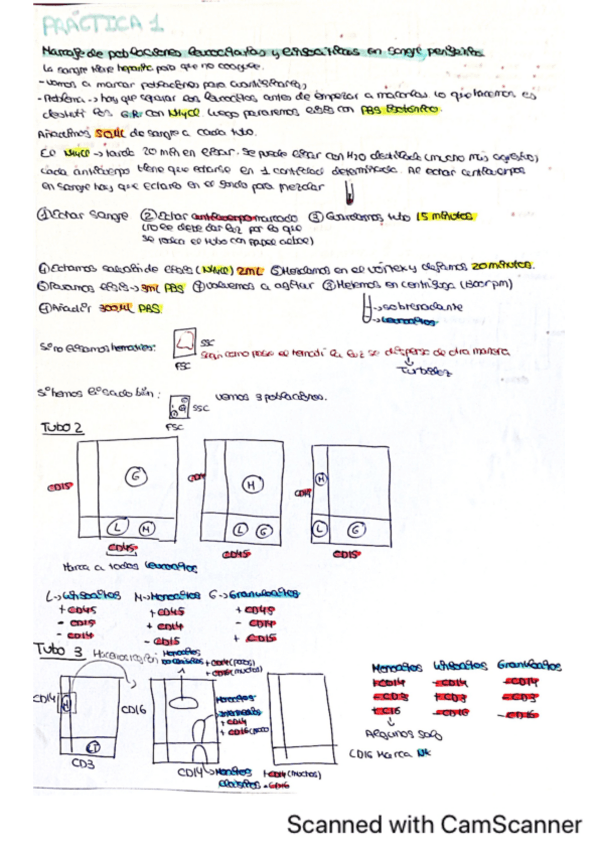 PRÁCTICA 1
Marcaje de poblaciones leucocitarias y linfocíticas en sangre periférica
La sangre tiene heparina para que no coagule.
- Vamos a marcar poblaciones para cuantificarlas,
- Problema -> hay que separar los leucocitos antes de empezar a marcarlos. Lo que hacemos es
con NH4Cl. Luego pararemos lisis con PBS isotónico.
Añadimos 50µL de sangre a cada tubo.
El NH4Cl -> tarda 20 min en lisar. Se puede lisar con H2O destilada (mucho más agresivo)
cada anticuerpo tiene que echarse en 1 cantidad determinada. Al echar anticuerpos
en sangre hay que echarlo en el fondo para mezclar
① Echar sangre ② Echar anticuerpo marcado ③ Guardamos tubo 15 minutos
(no le debe dar luz por lo que
se rodea el tubo con papel albal)
④ Echamos solución de lisis (NH4Cl) 2mL ⑤ Mezclamos en el vórtex y dejamos 20 minutos.
⑥ Paramos lisis -> 2mL PBS ⑦ Volvemos a agitar ⑧ Metemos en centrífuga (1500rpm)
⑨ Añadir 300µL PBS
-> sobrenadante
-> Leucocitos
Si no lisamos hematíes:
SSC
FSC
Según como pase el hematí la luz se dispersa de otra manera
Turbidez
Si hemos lisado bien:
SSC
FSC
vemos 3 poblaciones.
Tubo 2
CD15 G L M CD45
CD14 M L G CD45
CD14 M L G CD15
Marca a todos leucocitos
L -> Linfocitos M -> Monocitos G -> Granulocitos
+ CD45 + CD45 + CD45
- CD15 + CD14 - CD14
- CD14 - CD15 + CD15
Tubo 3
Monocitos
no clásicos + CD14 (pocos)
+ CD16 (muchos)
CD14 M L CD3
CD16
CD14
Monocitos
intermedios
+ CD14
+ CD16 (poco)
Monocitos
clásicos
+ CD14 (muchos)
- CD16
Monocitos Linfocitos Granulocitos
+ CD14 - CD14 - CD14
- CD3 + CD3 - CD3
+ C16 - CD16 - CD16
Algunos solo
CD16 Marca NK
Scanned with CamScanner